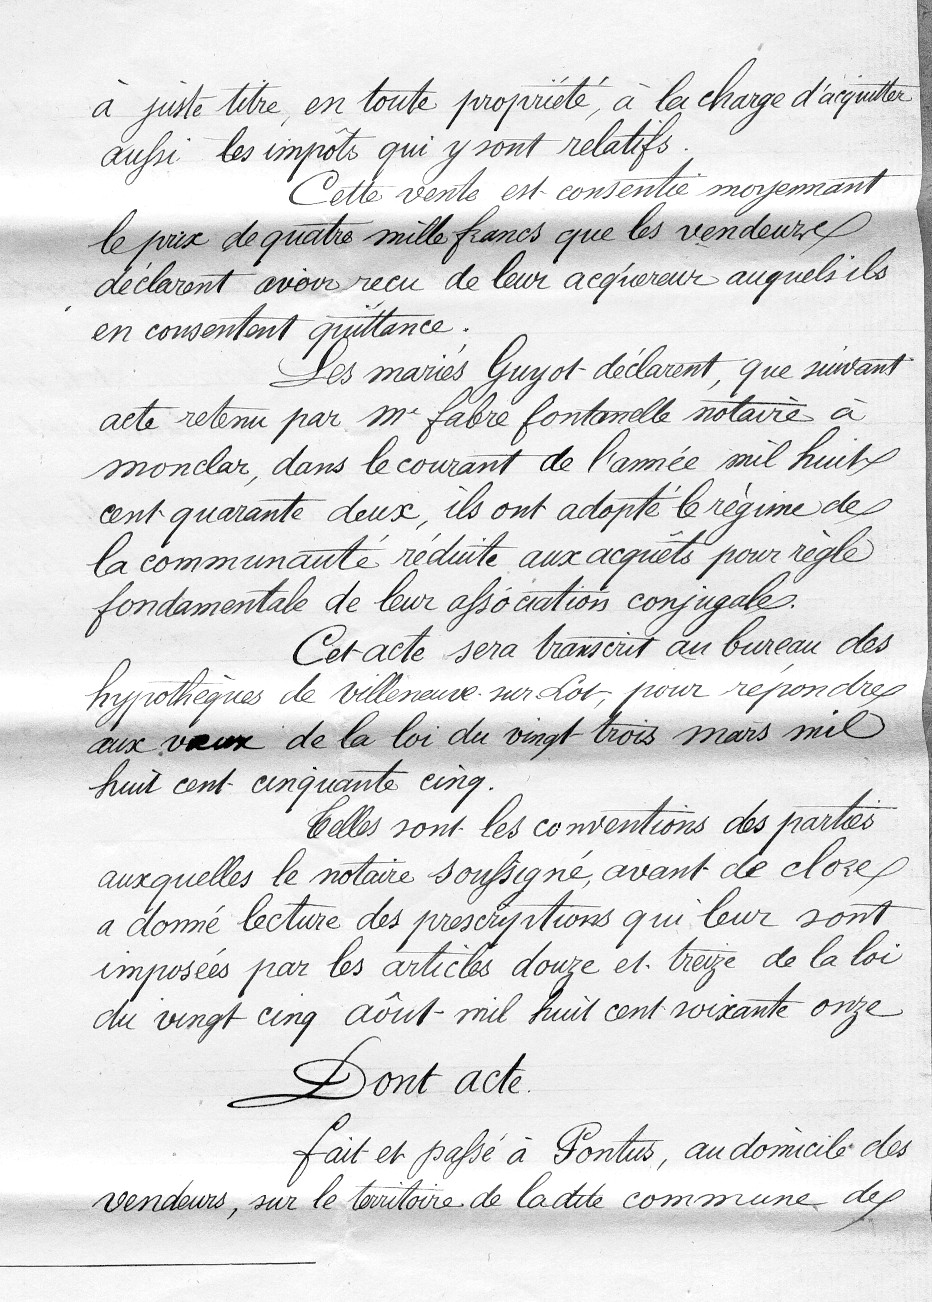 à juste titre, en toute propriété, à la charge d'acquitter
aussi les impôts qui y sont relatifs.
Cette vente est consentie moyennant
le prix de quatre mille francs que les vendeurs
déclarent avoir reçu de leur acquéreur auquels ils
en consentent quittance.
Les mariés Guyot déclarent, que suivant
acte retenu par Me fabre fontanelle notaire à
monclar, dans le courant de l'année mil huit
cent quarante deux, ils ont adopté le régime de
la communauté réduite aux acquêts pour règle
fondamentale de leur association conjugale.
Cet acte sera transcrit au bureau des
hypothèques de villeneuve sur Lot, pour répondre
aux vœux de la loi du vingt trois mars mil
huit cent cinquante cinq.
Telles sont les conventions des parties
auxquelles le notaire soussigné, avant de clore
a donné lecture des prescriptions qui leur sont
imposées par les articles douze et treize de la loi
du vingt cinq août mil huit cent soixante onze
Dont acte.
fait et passé à Pontus, au domicile des
vendeurs, sur le territoire de ladite commune de